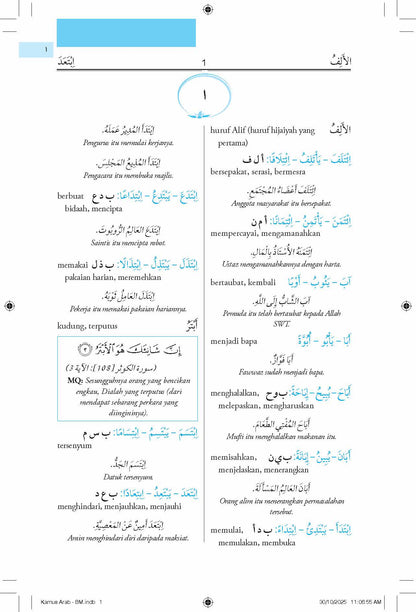 1
الأَلِفُ
1
اِبْتَعَدَ
ا
الأَلِفُ huruf Alif (huruf hijaiyah yang
pertama)
اِئْتَلَفَ – يَأْتَلِفُ – اِئْتِلَافًا: أ ل ف
bersepakat, serasi, bermesra
اِئْتَلَفَ أَعْضَاءُ الْمُجْتَمَعِ.
Anggota masyarakat itu bersepakat.
اِئْتَمَنَ – يَأْتَمِنُ – اِئْتِمَانًا: أ م ن
mempercayai, mengamanahkan
اِئْتَمَنَهُ الْأُسْتَاذُ بِالْمَالِ.
Ustaz mengamanahkannya dengan harta.
آبَ – يَئُوبُ – أَوْبًا bertaubat, kembali
آبَ الشَّابُّ إِلَى اللهِ.
Pemuda itu telah bertaubat kepada Allah
SWT.
أَبَا – يَأْبُو – أُبُوَّةً menjadi bapa
أَبَا فَوَّازٌ.
Fawwaz sudah menjadi bapa.
أَبَاحَ – يُبِيحُ – إِبَاحَةً: ب و ح menghalalkan,
melepaskan, mengharuskan
أَبَاحَ الْمُفْتِي الطَّعَامَ.
Mufti itu menghalalkan makanan itu.
أَبَانَ – يُبِينُ – إِبَانَةً: ب ي ن memisahkan,
menjelaskan, menerangkan
أَبَانَ الْعَالِمُ الْمَسْأَلَةَ.
Orang alim itu menerangkan permasalahan
tersebut.
اِبْتَدَأَ – يَبْتَدِئُ – اِبْتِدَاءً: ب د أ memulai,
memulakan, membuka
اِبْتَدَأَ الْمُدِيرُ عَمَلَهُ.
Pengurus itu memulai kerjanya.
اِبْتَدَأَ الْمُذِيعُ الْمَجْلِسَ.
Pengacara itu membuka majlis.
اِبْتَدَعَ – يَبْتَدِعُ – اِبْتِدَاعًا: ب د ع berbuat
bidaah, mencipta
اِبْتَدَعَ الْعَالِمُ الرُّوبُوتَ.
Saintis itu mencipta robot.
اِبْتَذَلَ – يَبْتَذِلُ – اِبْتِذَالًا: ب ذ ل memakai
pakaian harian, meremehkan
اِبْتَذَلَ الْعَامِلُ ثَوْبَهُ.
Pekerja itu memakai pakaian hariannya.
أَبْتَرُ kudung, terputus
إِنَّ شَانِئَكَ هُوَ الْأَبْتَرُ ٣
(سورة الكوثر [108]: الآية 3)
MQ: Sesungguhnya orang yang bencikan
engkau, Dialah yang terputus (dari
mendapat sebarang perkara yang
diingininya).
اِبْتَسَمَ – يَبْتَسِمُ – اِبْتِسَامًا: ب س م
tersenyum
اِبْتَسَمَ الْجَدُّ.
Datuk tersenyum.
اِبْتَعَدَ – يَبْتَعِدُ – اِبْتِعَادًا: ب ع د
menghindari, menjauhkan, menjauhi
اِبْتَعَدَ أَمِينٌ عَنْ الْمَعْصِيَةِ.
Amin menghindari dari daripada maksiat.
Kamus Arab - BM.indb 1
30/10/2025 11:06:55 AM